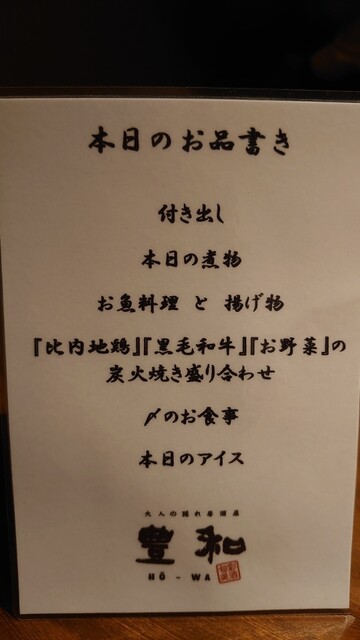 本日のお品書き
付き出し
本日の煮物
お魚料理 と 揚げ物
『比内地鶏』『黒毛和牛』『お野菜』の
炭火焼き盛り合わせ
〆のお食事
本日のアイス
大人の隠れ居酒屋
豊和
HŌ-WA